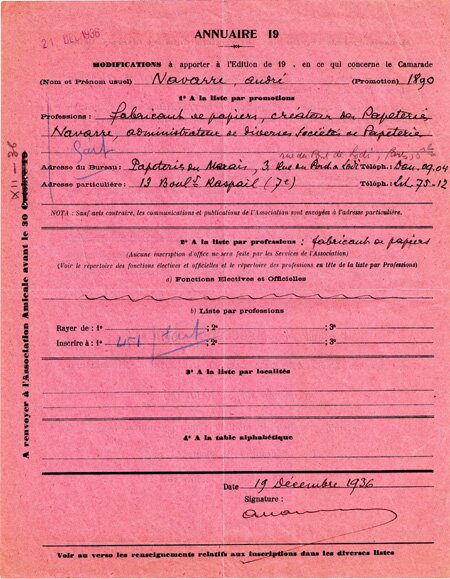 21 DEC 1936
ANNUAIRE 19
MODIFICATIONS à apporter à l'Edition de 19 , en ce qui concerne le Camarade
(Nom et Prénom usuel) Navarre, André (Promotion) 1890
1° A la liste par promotions
Professions : fabricant de papiers, créateur des Papeteries
Navarre, administrateur de diverses Sociétés de Papeterie
rue du Pont de Lodi, Paris, 6e
Adresse du Bureau : Papeteries du Marais, 3 Rue du Pont de Lodi Téléph. : Dan. 09.04
Adresse particulière : 13 Bould Raspail (7e) Téléph. : Lit. 75-12
NOTA : Sauf avis contraire, les communications et publications de l'Association sont envoyées à l'adresse particulière.
2° A la liste par professions : fabricant de papiers
(Aucune inscription d'office ne sera faite par les Services de l'Association)
(Voir le répertoire des fonctions électives et officielles et le répertoire des professions en tête de la liste par Professions)
a) Fonctions Electives et Officielles
b) Liste par professions
Rayer de : 1° ; 2° ; 3°
Inscrire à : 1° 451 ; 2° ; 3°
3° A la liste par localités
4° A la table alphabétique
Date 19 Décembre 1936
Signature :
Voir au verso les renseignements relatifs aux inscriptions dans les diverses listes
A renvoyer à l'Association Amicale avant le 30 Octobre 19
XII-36